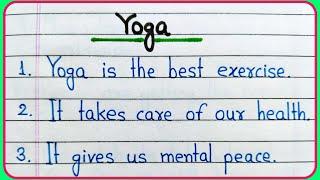 Yoga
1. Yoga is the best exercise.
2. It takes care of our health.
3. It gives us mental peace.